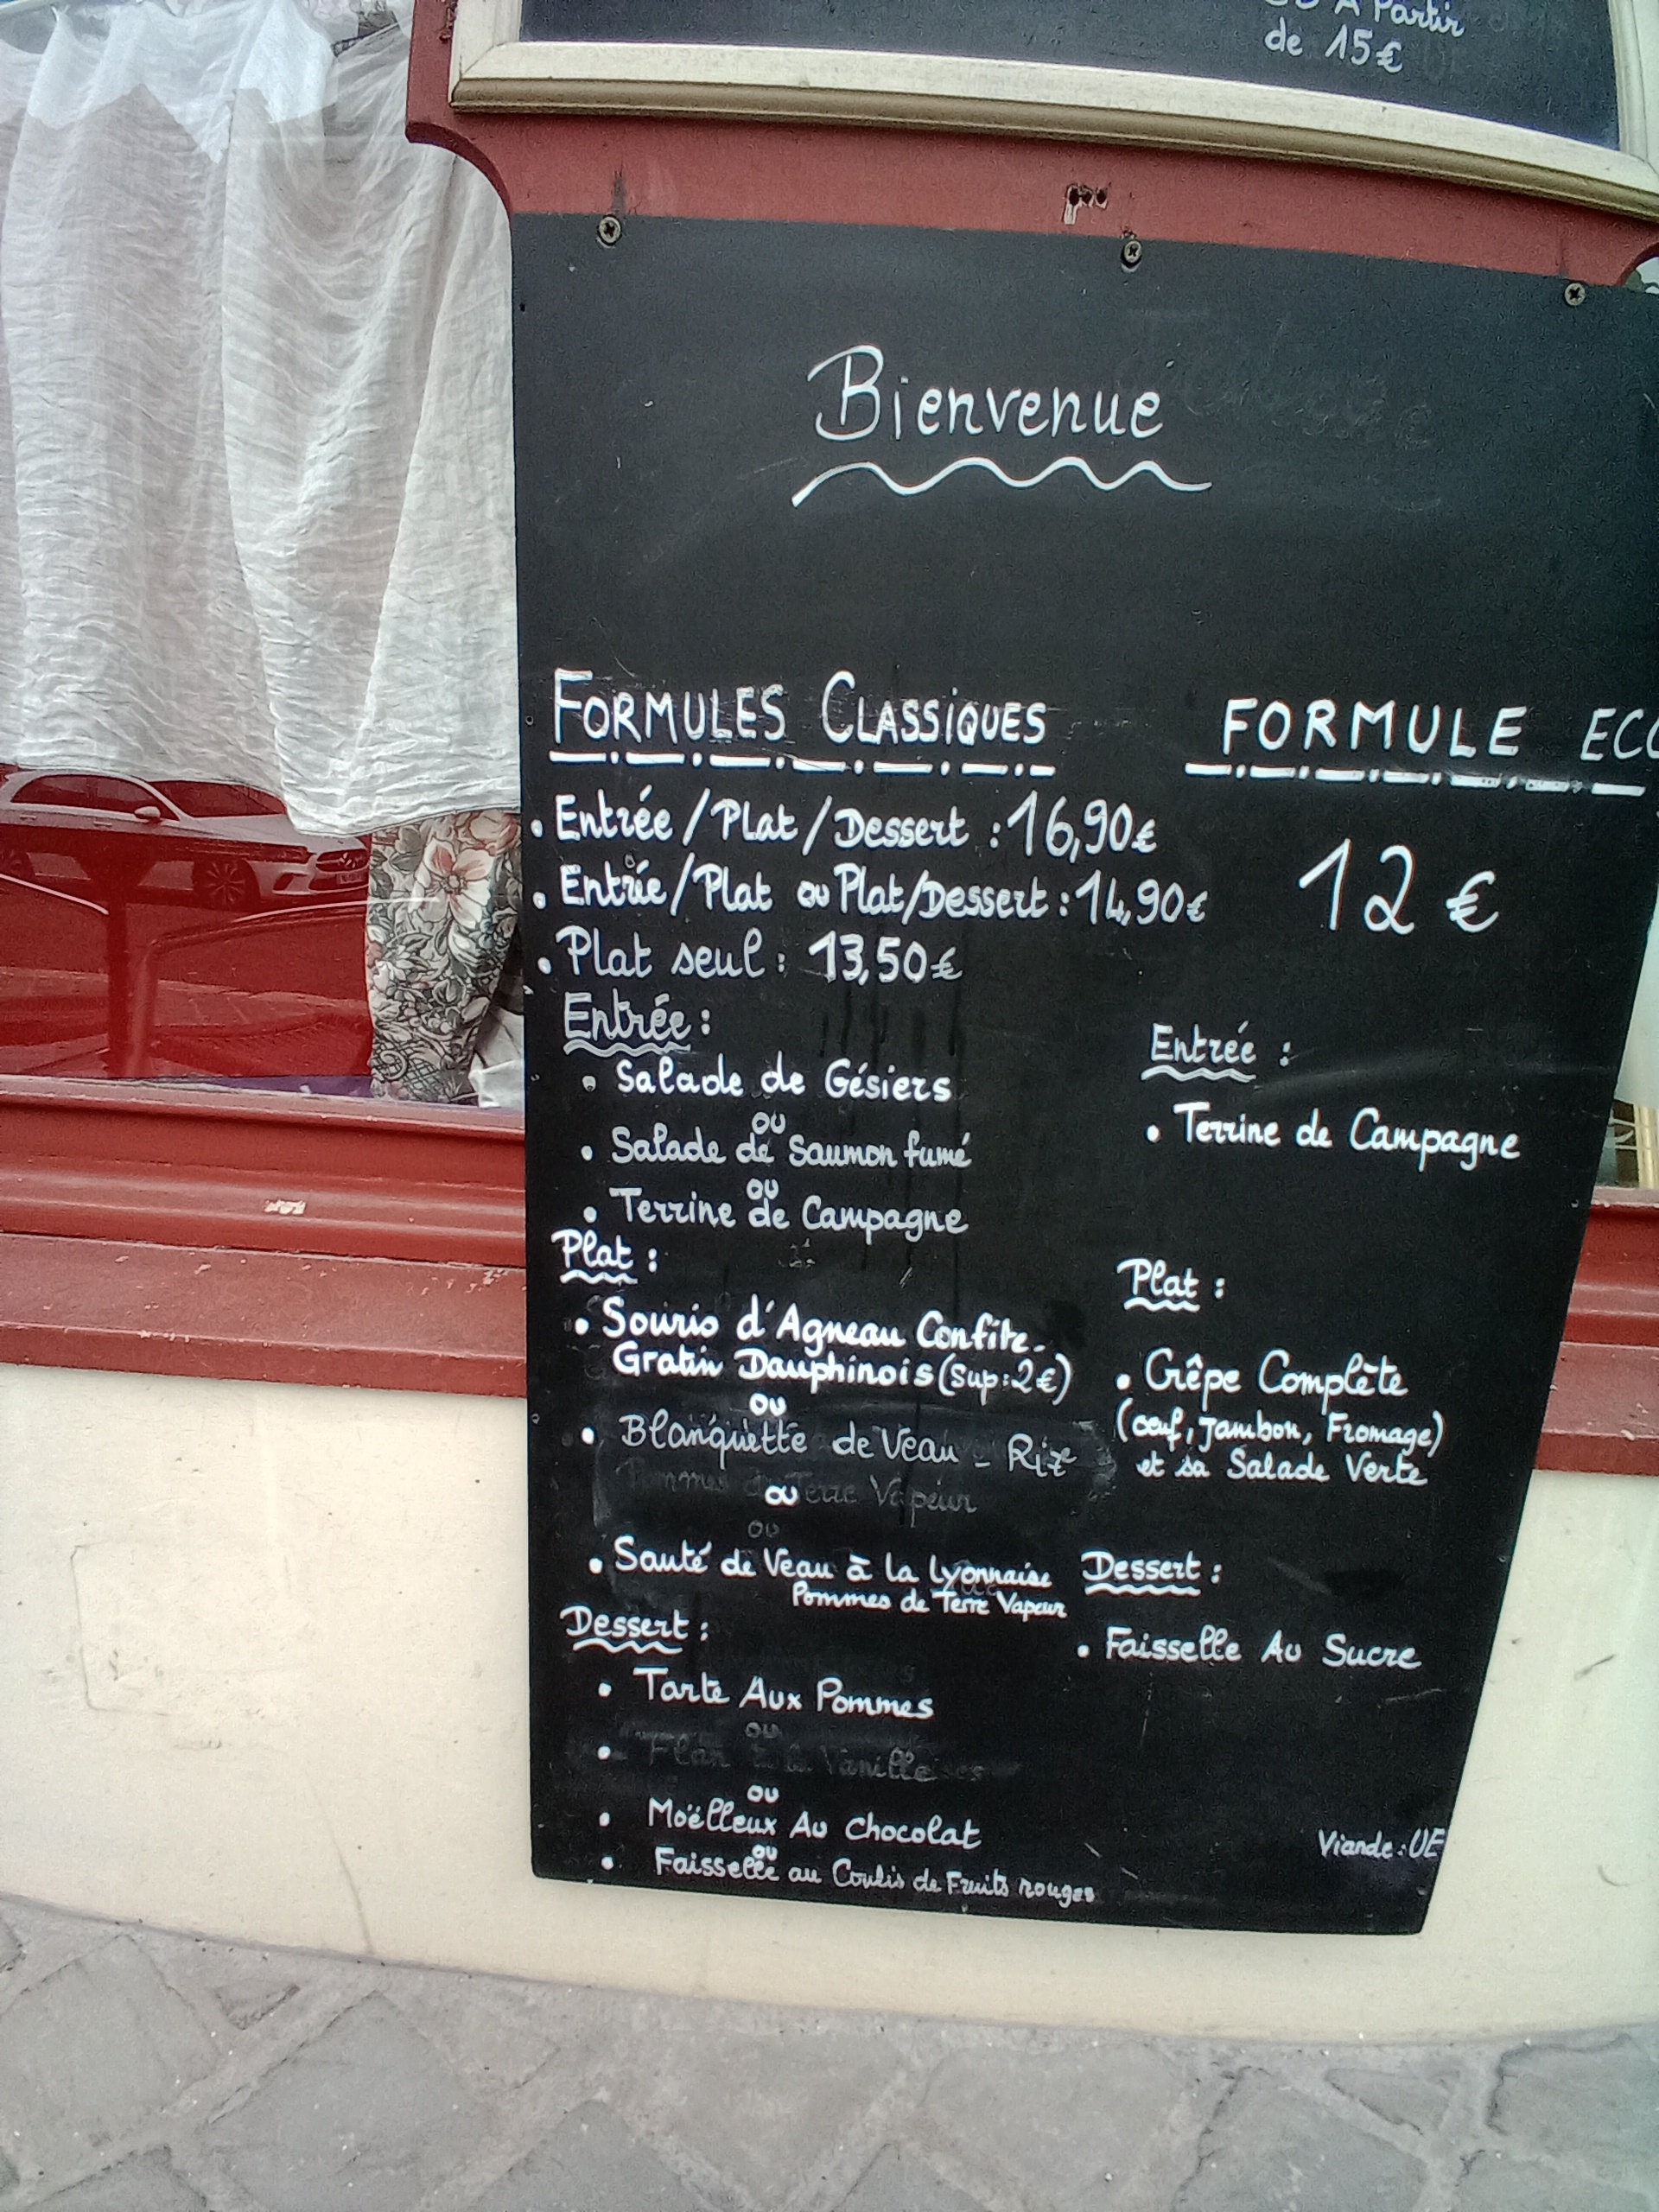 A Partir
de 15€
Bienvenue
FORMULES CLASSIQUES
• Entrée/Plat/Dessert : 16,90€
• Entrée/Plat ou Plat/Dessert : 14,90€
• Plat seul : 13,50€
Entrée :
• Salade de Gésiers
ou
• Salade de Saumon fumé
ou
• Terrine de Campagne
Plat :
• Souris d'Agneau Confite-
Gratin Dauphinois (Sup:2€)
ou
• Blanquette de Veau - Riz
Pommes de Terre Vapeur
ou
ou
• Sauté de Veau à la Lyonnaise
Pommes de Terre Vapeur
Dessert :
• Tarte Aux Pommes
ou
• Flan à la Vanille
ou
• Moëlleux Au Chocolat
ou
• Faisselle au Coulis de Fruits rouges
FORMULE ECO
12 €
Entrée :
• Terrine de Campagne
Plat :
• Crêpe Complète
(œuf, Jambon, Fromage)
et sa Salade Verte
Dessert :
• Faisselle Au Sucre
Viande : UE